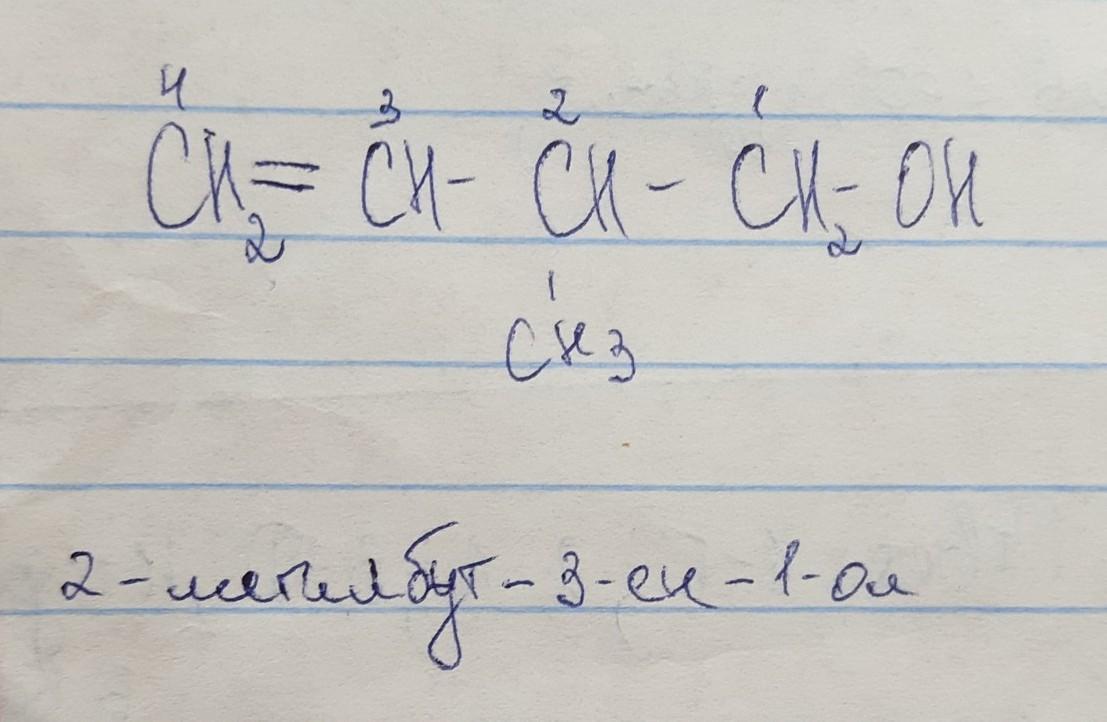 4 3 2 1
CH2=CH-CH-CH2-OH
CH3
2-метилбут-3-ен-1-ол